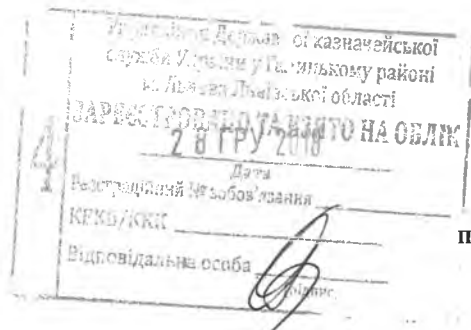 Державної казначейської
служби України у Галицькому районі
м. Львова Львівської області
ЗАРЕЄСТРОВАНО ТА ВЗЯТО НА ОБЛІК
4
28 ГРУ 2018
Дата
Реєстраційний № зобов'язання
КЕКВ/ККК
Відповідальна особа
підпис
П